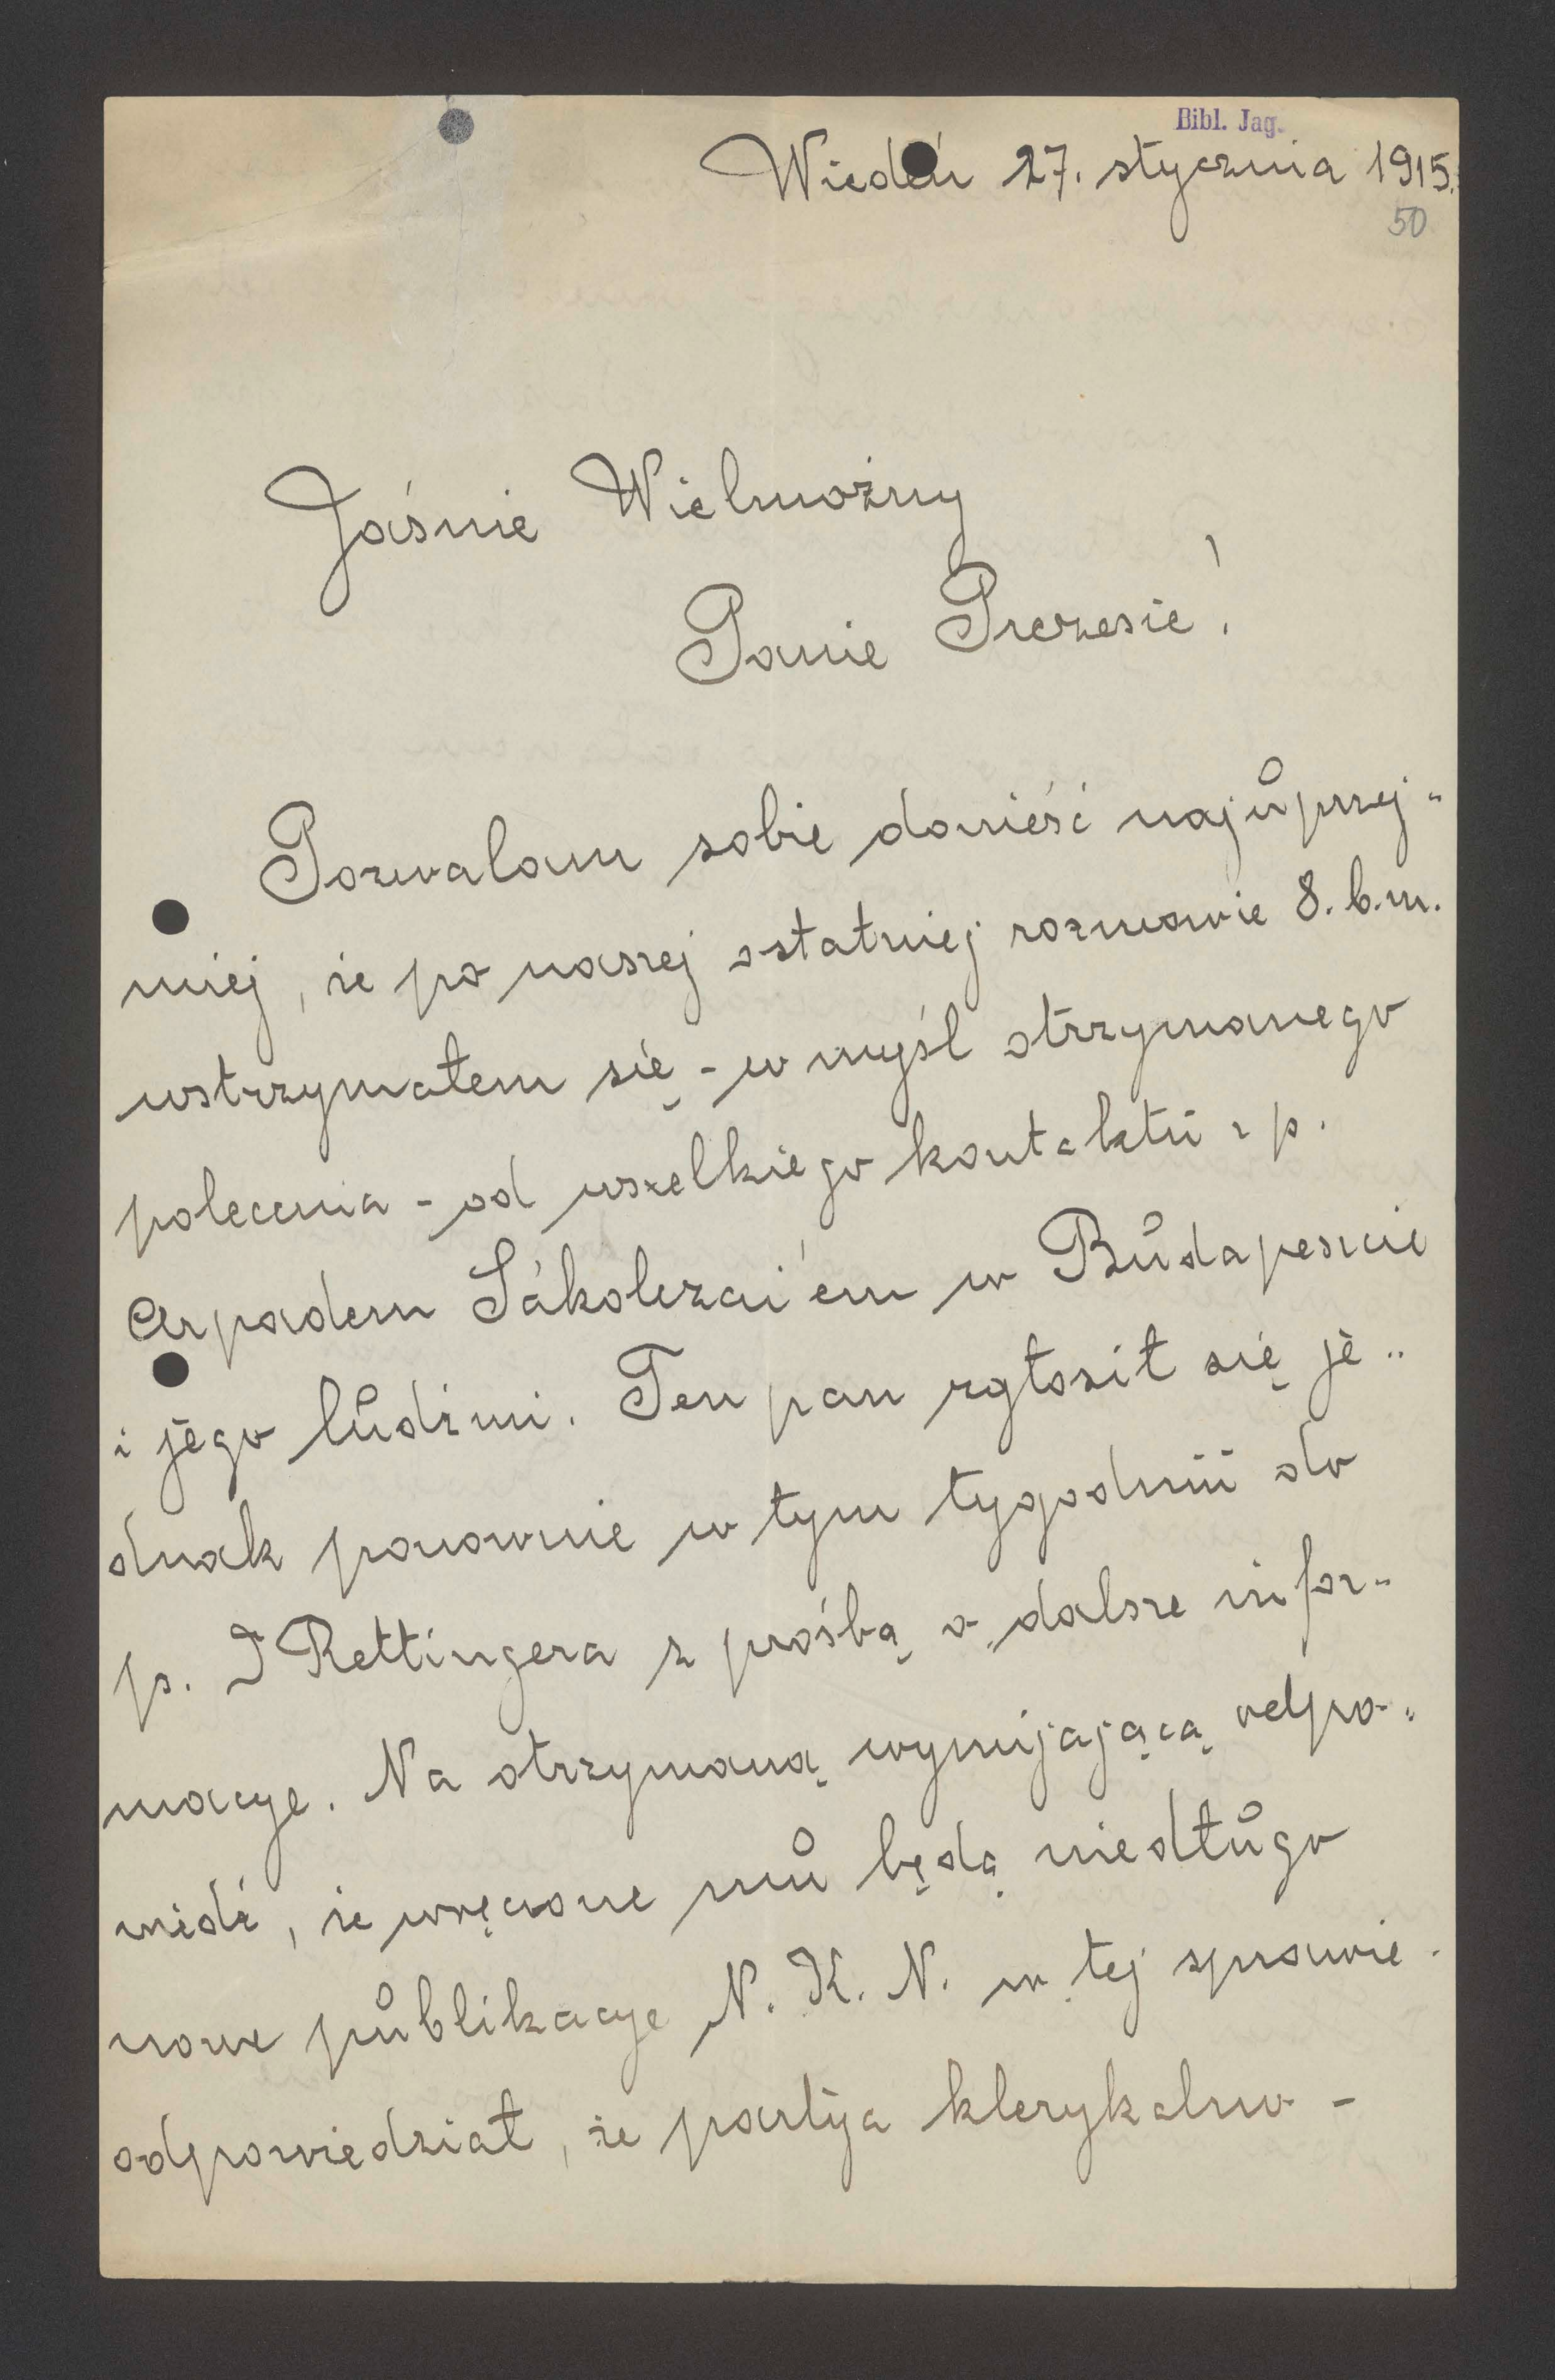 Bibl. Jag.
Wiedeń 27. stycznia 1915.
50
Jaśnie Wielmożny
Panie Prezesie!
Pozwalam sobie donieść najuprzej-
miej, że po naszej ostatniej rozmowie 8. b.m.
wstrzymałem się - w myśl otrzymanego
polecenia - od wszelkiego kontaktu z p.
Arpadem Sákolczai'em w Budapeszcie
i jego ludźmi. Ten pan zgłosił się je-
dnak ponownie w tym tygodniu do
p. J Rettingera z prośbą o dalsze infor-
macye. Na otrzymaną wymijającą odpo-
wiedź, że wręczone mu będą niedługo
nowe publikacye N. K. N. w tej sprawie -
odpowiedział, że partya klerykalno -